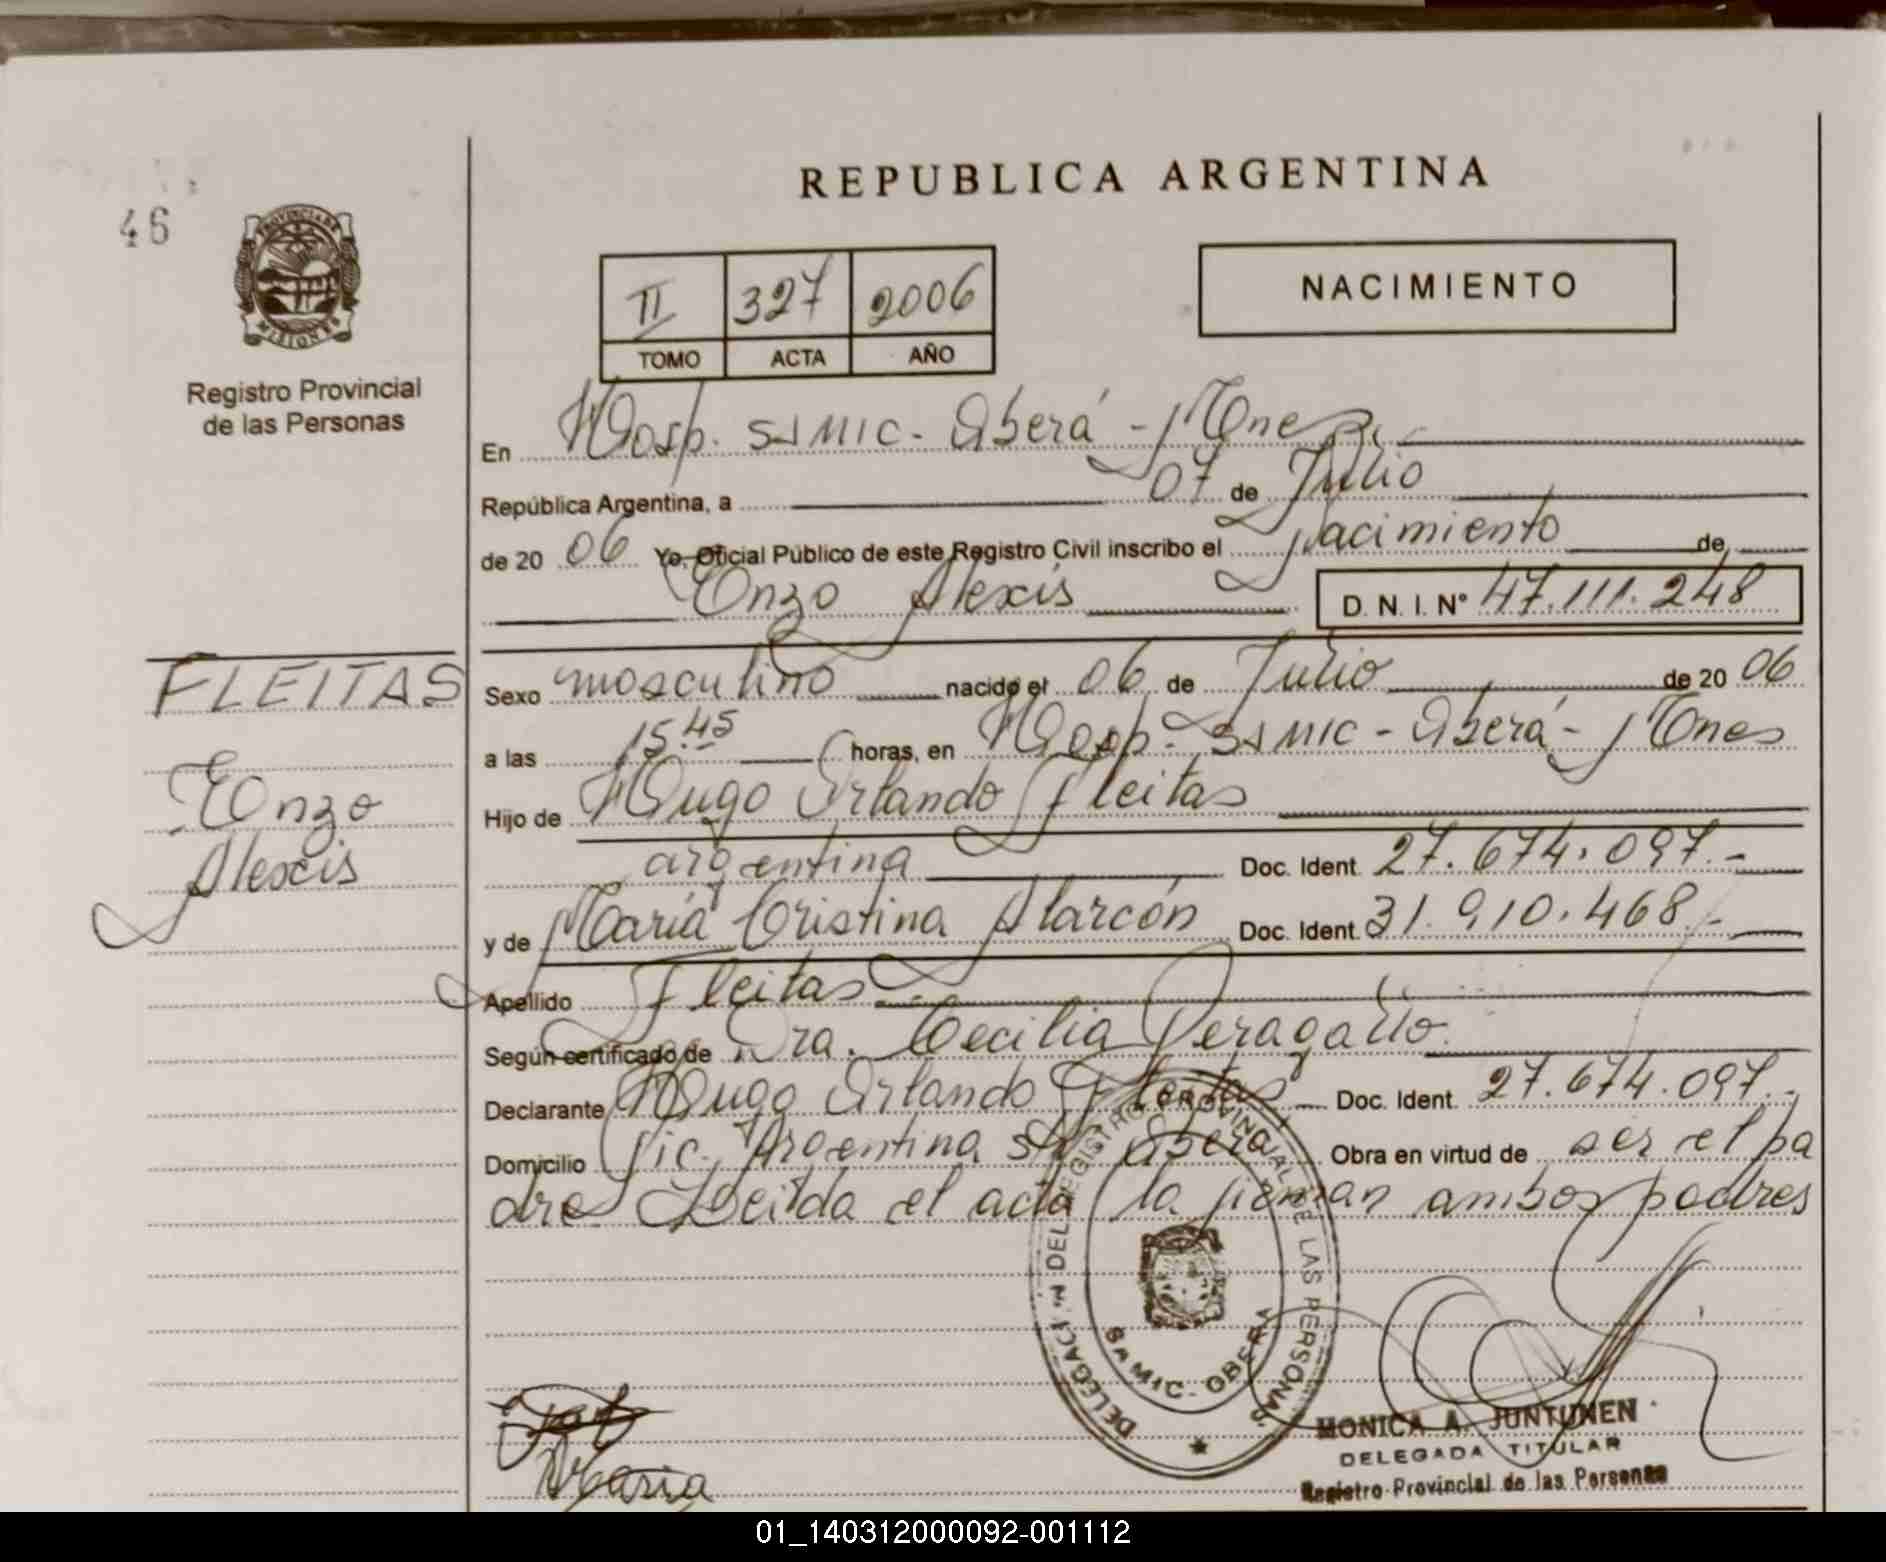 REPUBLICA ARGENTINA
46
PROVINCIA DE
MISIONES
Registro Provincial
de las Personas
II 327 2006
TOMO ACTA AÑO
NACIMIENTO
En Hosp. SAMIC - Oberá - Mnes,
República Argentina, a 07 de Julio
de 20 06 Yo, Oficial Público de este Registro Civil inscribo el Nacimiento de
Enzo Alexis D. N. I. Nº 47.111.248
FLEITAS
Enzo
Alexis
Sexo masculino nacido el 06 de Julio de 20 06
a las 15.45 horas, en Hosp. SAMIC - Oberá - Mnes
Hijo de Hugo Orlando Fleitas
argentina Doc. Ident. 27.674.097.-
y de María Cristina Alarcón Doc. Ident. 31.910.468.-
Apellido Fleitas
Según certificado de Dra. Cecilia Peragallo.
Declarante Hugo Orlando Fleitas Doc. Ident. 27.674.097.-
Domicilio Argentina S/N Oberá Obra en virtud de ser el pa
dre. Leída el acta la firman ambos padres
DELEGACIÓN DEL REGISTRO PROVINCIAL DE LAS PERSONAS
SAMIC - OBERA
MONICA A. JUNTUNEN
DELEGADA TITULAR
Registro Provincial de las Personas
Maria
01_140312000092-001112